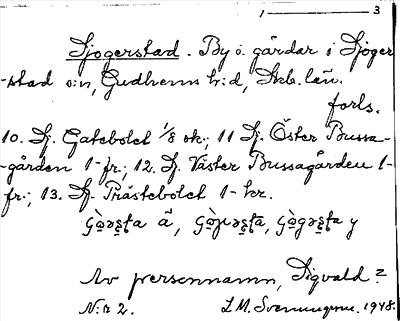 1 — 3
Sjogerstad. By o. gårdar i Sjoger
-stad s:n, Gudhems h:d, Skb. län.
forts.
10. Sj. Gatebolet 1/8 sk.; 11 Sj. Öster Bussa-
-gården 1-fr.; 12. Sj. Väster Bussagården 1-
fr.; 13. Sj. Prästebolet 1- kr.
ä, y
Av personnamn, Sigvald?
N:r 2. L.M. Svenungsson. 1948.